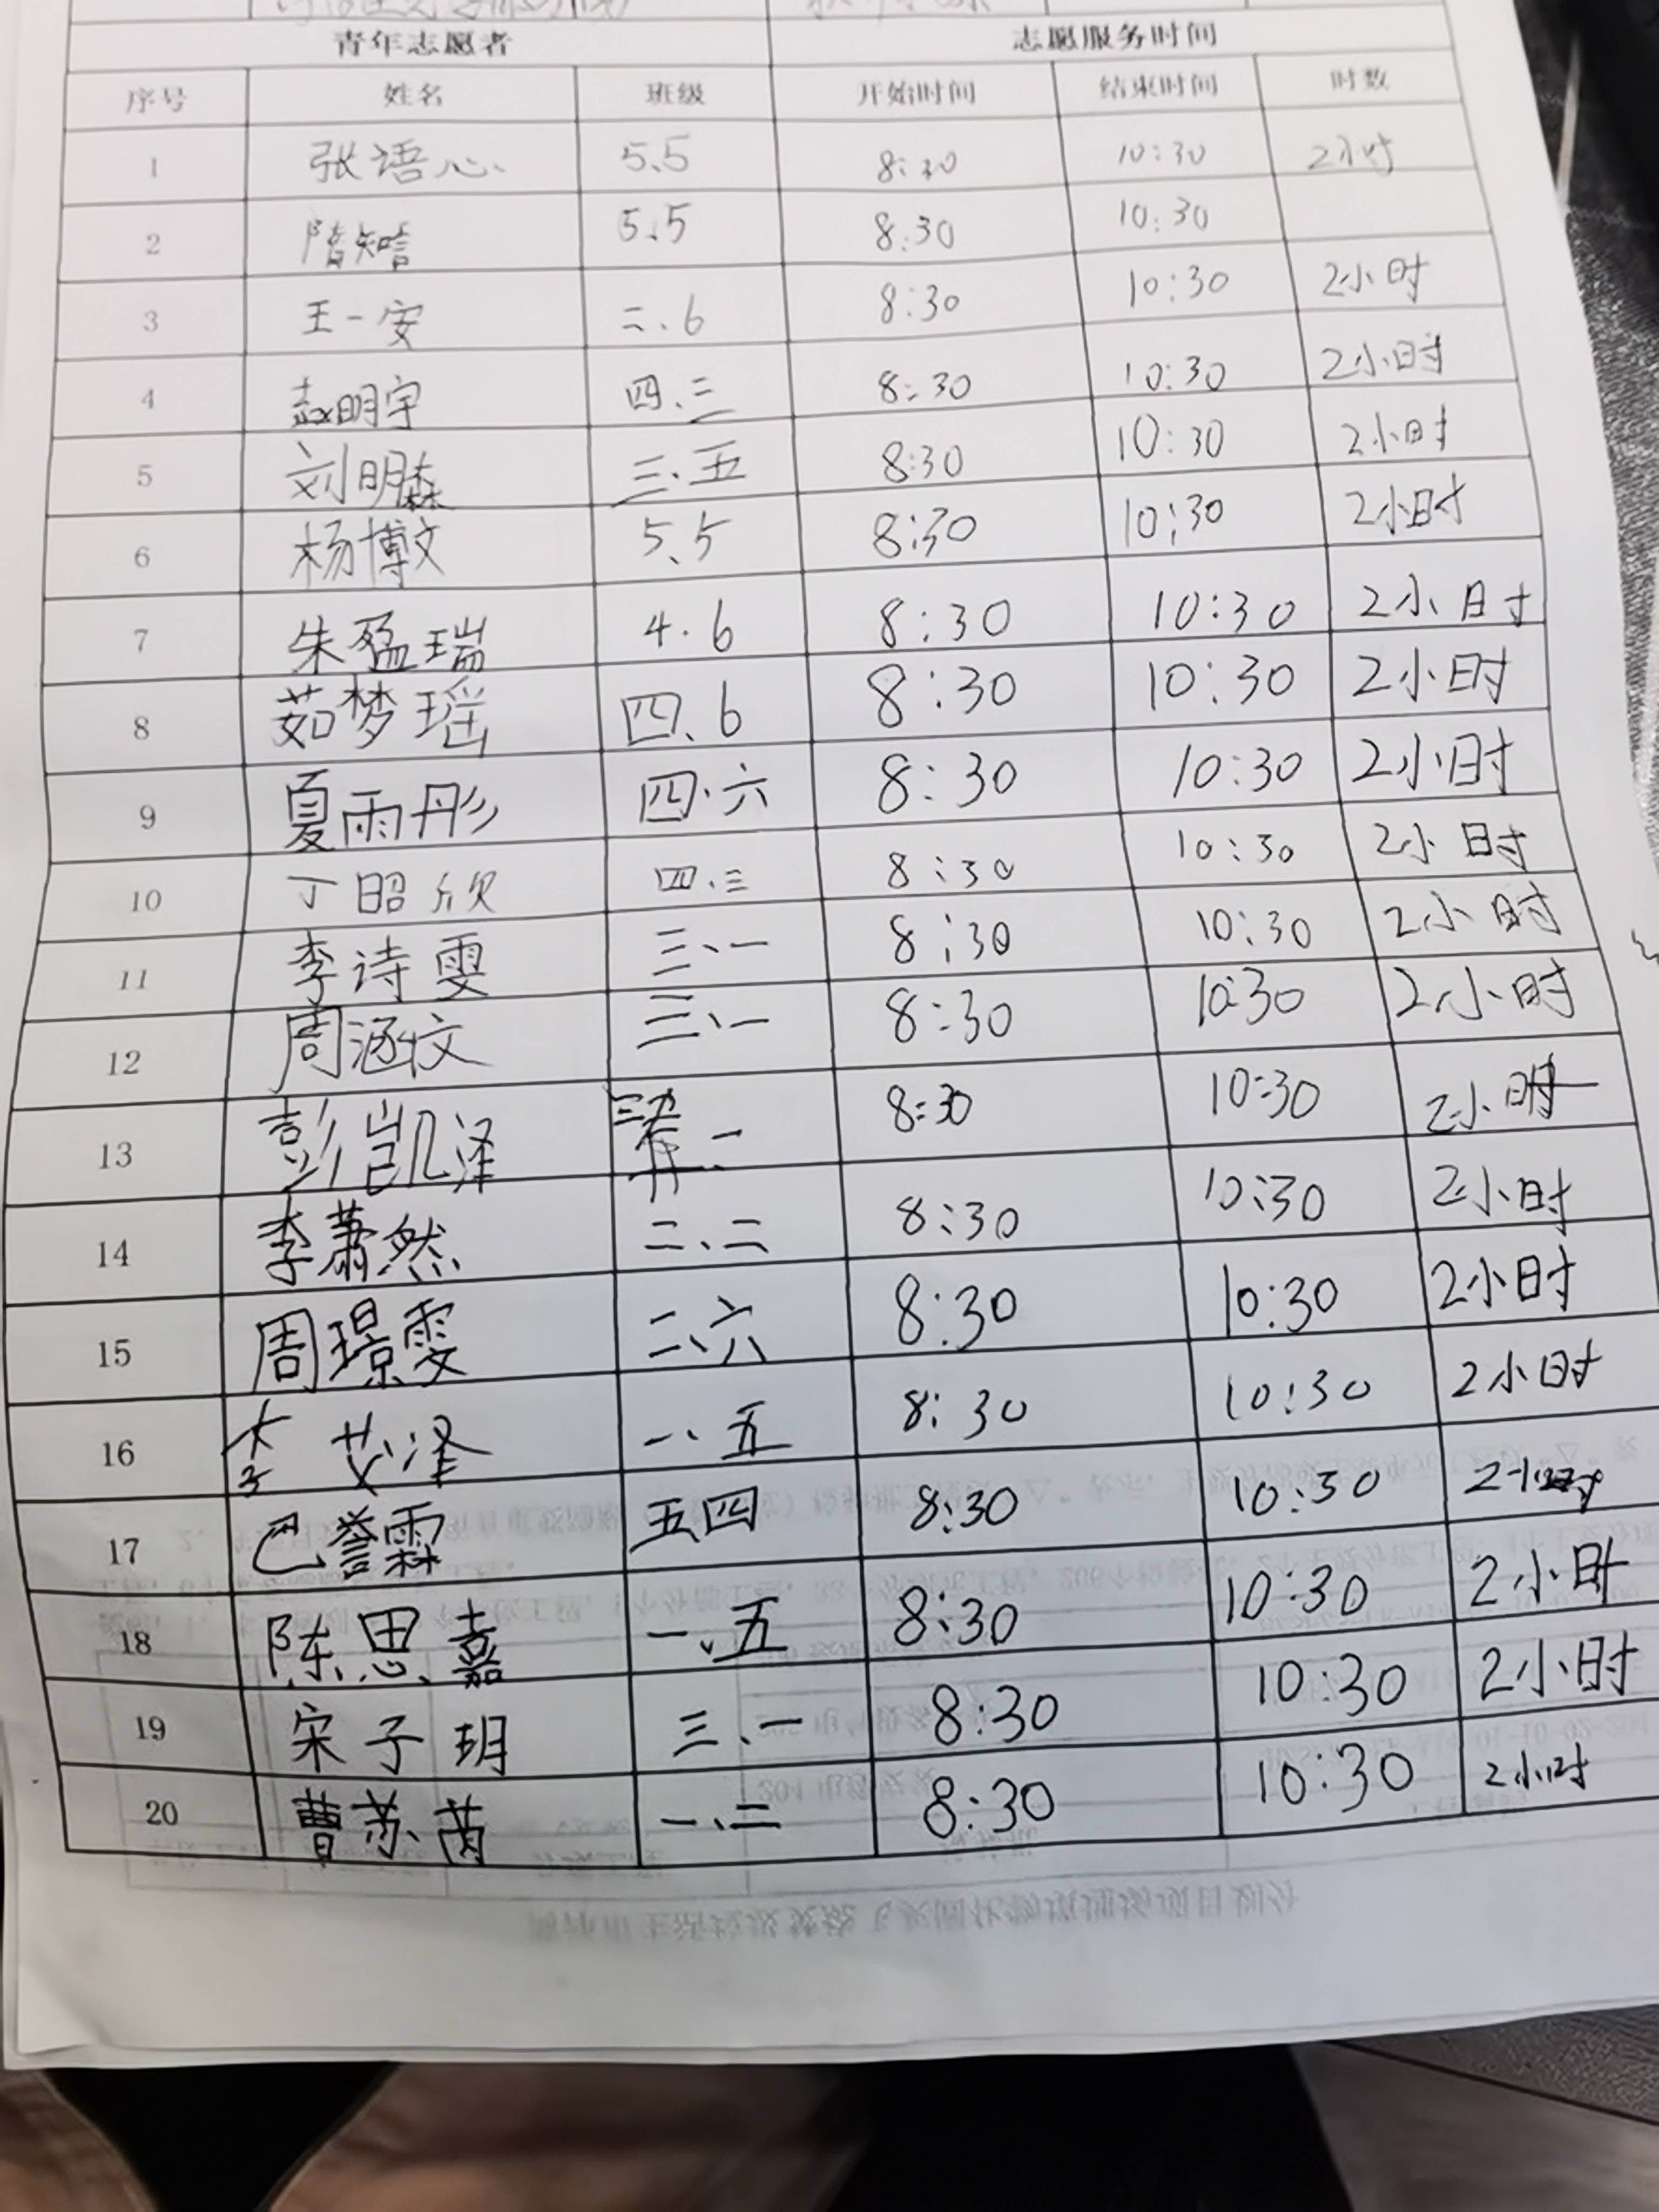 青年志愿者 志愿服务时间
序号 姓名 班级 开始时间 结束时间 时数
1 张语心 5.5 8:30 10:30 2小时
2 隋知言 5.5 8:30 10:30
3 王一安 二.6 8:30 10:30 2小时
4 赵明宇 四.三 8:30 10:30 2小时
5 刘明森 三.五 8:30 10:30 2小时
6 杨博文 5.5 8:30 10:30 2小时
7 朱盈瑞 4.6 8:30 10:30 2小时
8 茹梦瑶 四、6 8:30 10:30 2小时
9 夏雨彤 四.六 8:30 10:30 2小时
10 丁昭欣 四.三 8:30 10:30 2小时
11 李诗雯 三、一 8:30 10:30 2小时
12 周涵文 三、一 8:30 10:30 2小时
13 彭凯泽 8:30 10:30 2小时
14 李萧然 二、二 8:30 10:30 2小时
15 周璟雯 二、六 8:30 10:30 2小时
16 李艾泽 一、五 8:30 10:30 2小时
17 巴誉霖 五四 8:30 10:30 2小时
18 陈思嘉 一、五 8:30 10:30 2小时
19 宋子玥 三、一 8:30 10:30 2小时
20 曹苏芮 一、二 8:30 10:30 2小时